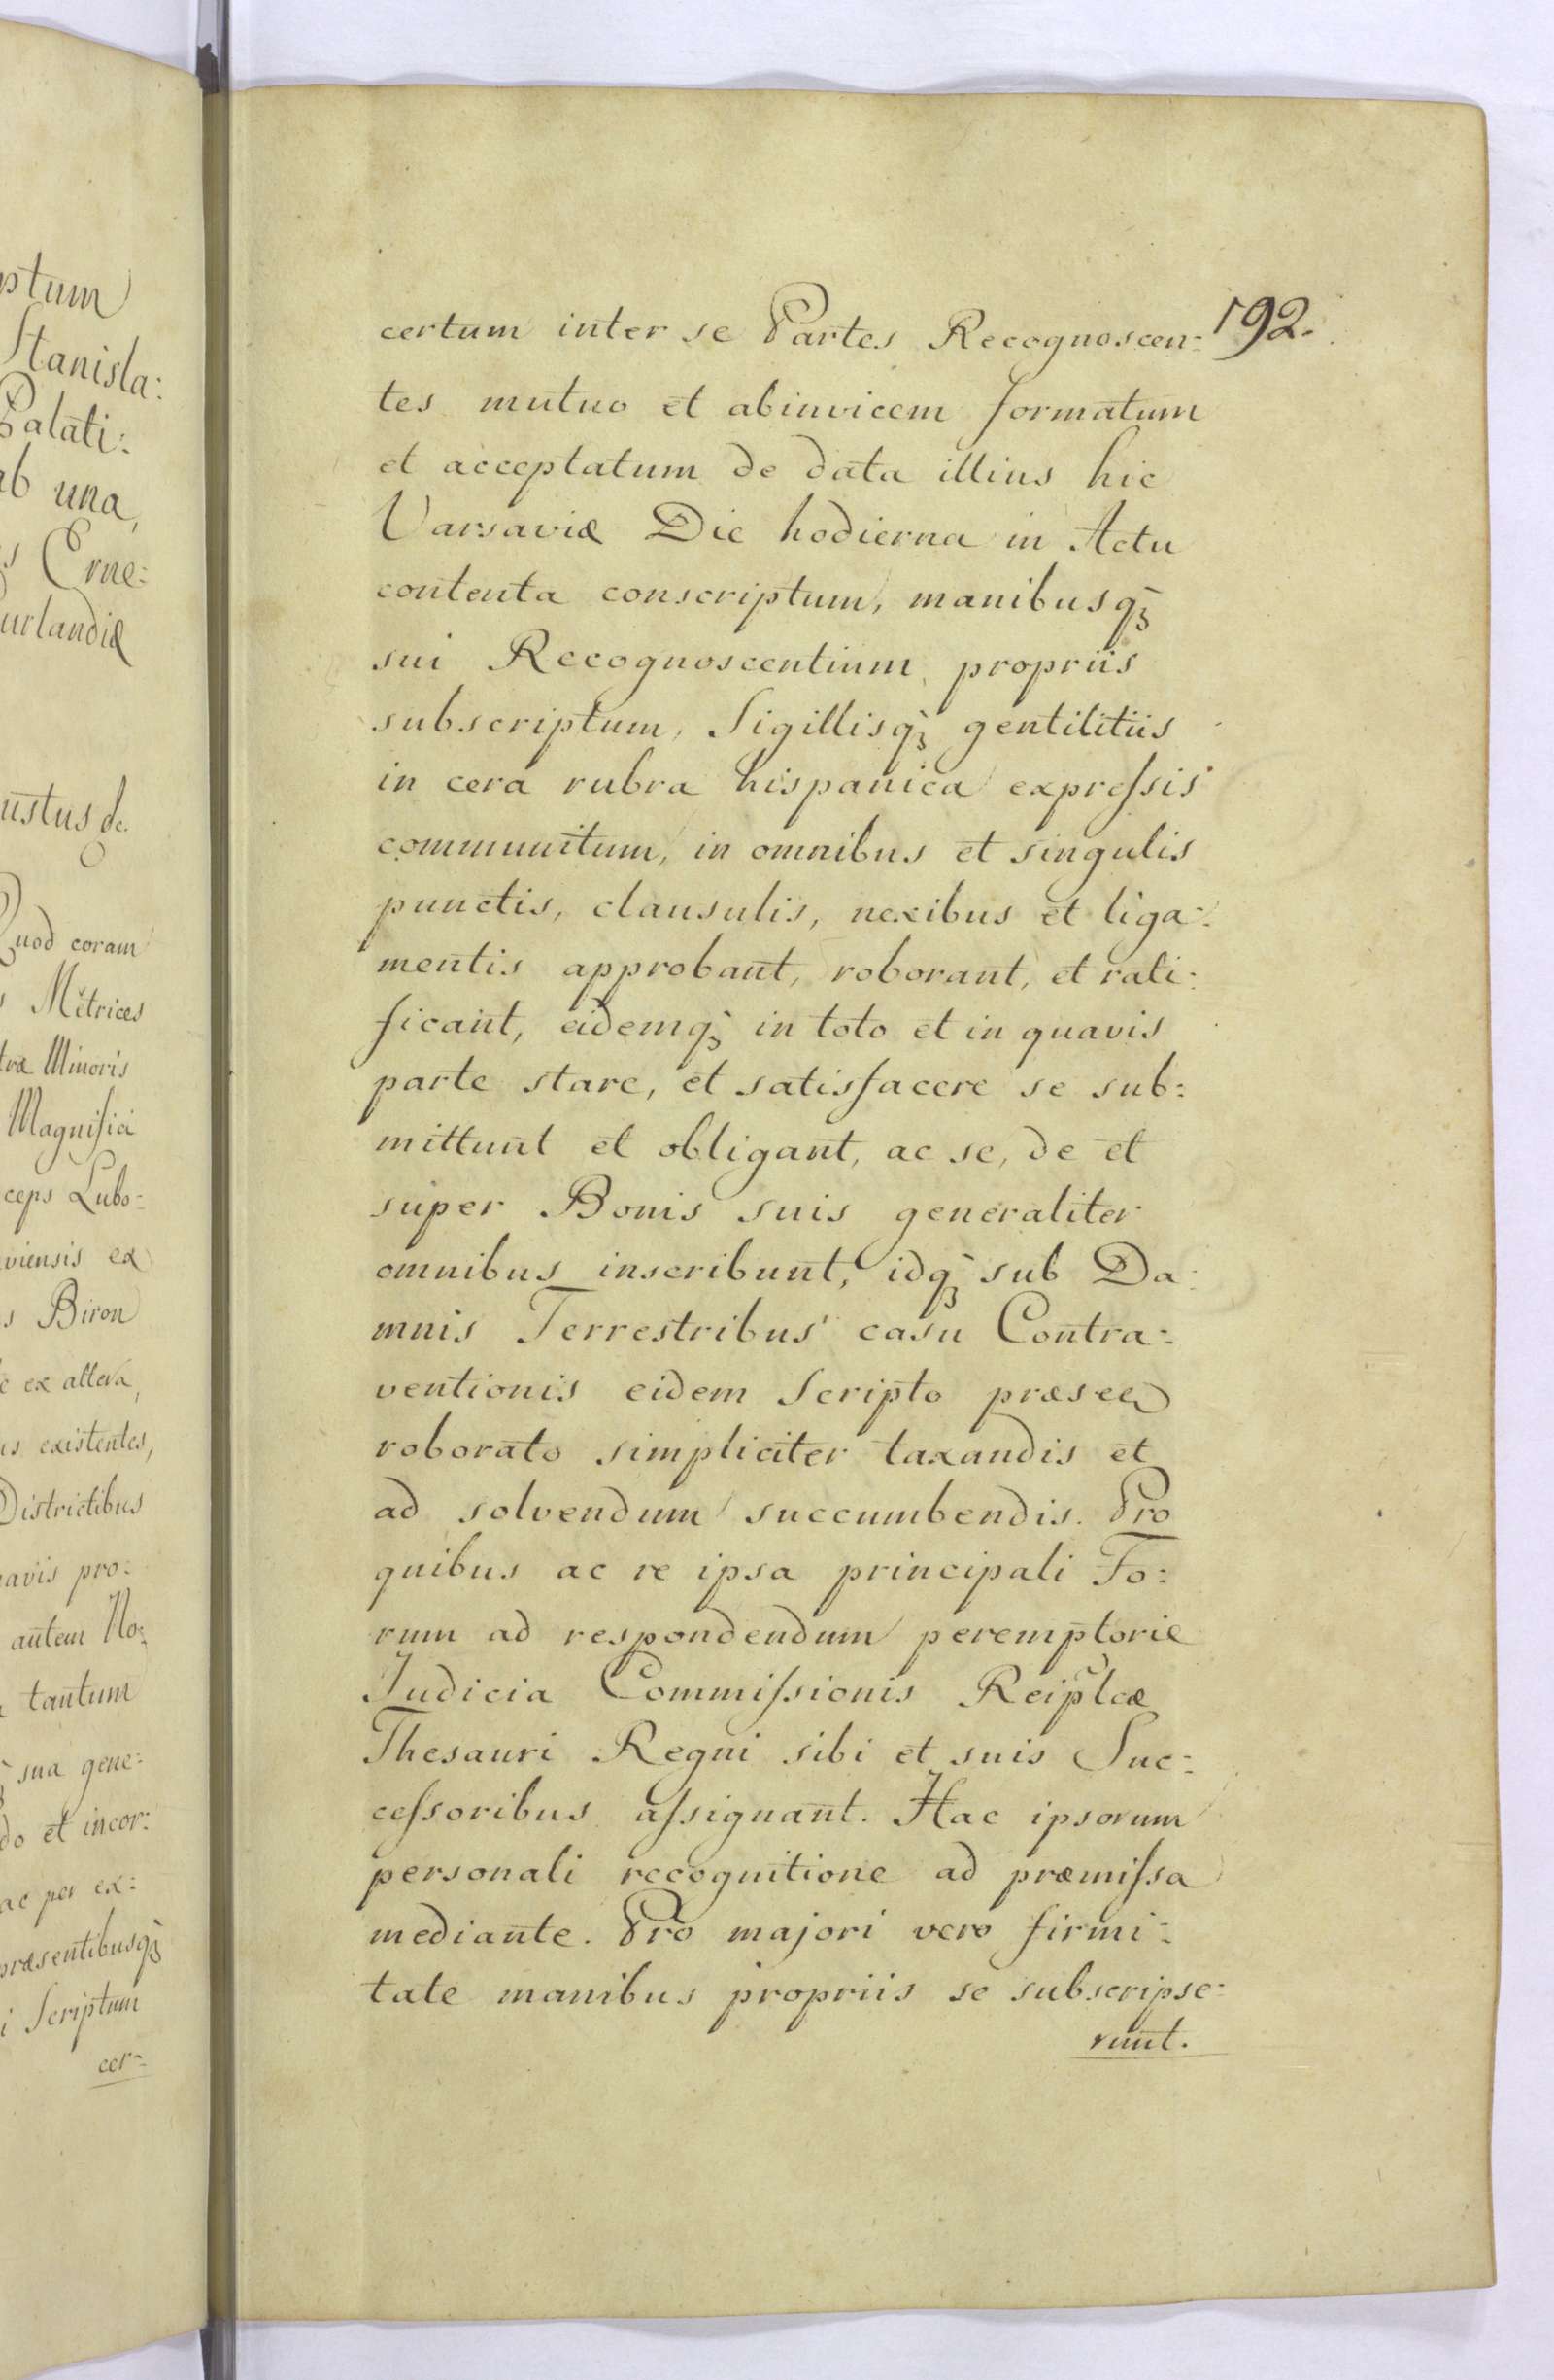 ptum
Stanisla:
Palati:
ab una,
s Erne:
urlandiæ
ustus &c.
Quod coram
s Mĕtrices
træ Minoris
Magnifici
ceps Lubo:
viensis ex
s Biron
ex altera,
is existentes,
Districtibus
avis pro:
autem No:
tantum
sua gene:
do et incor:
ac per ex:
præsentibusq̀ꝫ
i Scriptum
cer:
192.
certum inter se Partes Recognoscen:
tes mutuo et abinvicem formatum
et acceptatum de data illius hic
Varsaviæ Die hodierna in Actu
contenta conscriptum, manibusq̀ꝫ
sui Recognoscentium propriis
subscriptum, Sigillisq̀ꝫ gentilitiis
in cera rubra hispanica expreſsis
communitum, in omnibus et singulis
punctis, clausulis, nexibus et liga:
mentis approbant, roborant, et rati:
ficant, eidemq̀ꝫ in toto et in quavis
parte stare, et satisfacere se sub:
mittunt et obligant, ac se, de et
super Bonis suis generaliter
omnibus inscribunt, idq̀ꝫ sub Da:
mnis Terrestribus casu Contra:
ventionis eidem Scripto præsen
roborato simpliciter taxandis et
ad solvendum succumbendis. Pro
quibus ac re ipsa principali Fo:
rum ad respondendum peremptorie
Judicia Commiſsionis Reiplcæ
Thesauri Regni sibi et suis Suc:
ceſsoribus aſsignant. Hac ipsorum
personali recognitione ad præmiſsa
mediante. Pro majori vero firmi:
tate manibus propriis se subscripse:
runt.